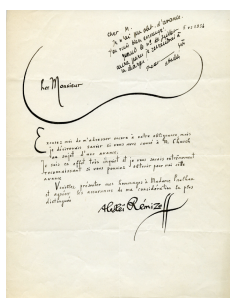 cher M.
je n'ai pas
d'avance
Cher Monsieur
Excusez moi de m'adresser encore à votre obligeance, mais
je désirerais savoir si vous avez causé à M. Church
au sujet d'une avance.
Je suis en effet très inquiet et je vous serais extrêmement
reconnaissant si vous pouviez l'obtenir pour moi cette
avance.
Veuillez présenter mes hommages à Madame Paulhan
et agréer les assurances de ma considération la plus
distinguée
Alexéi Remizoff